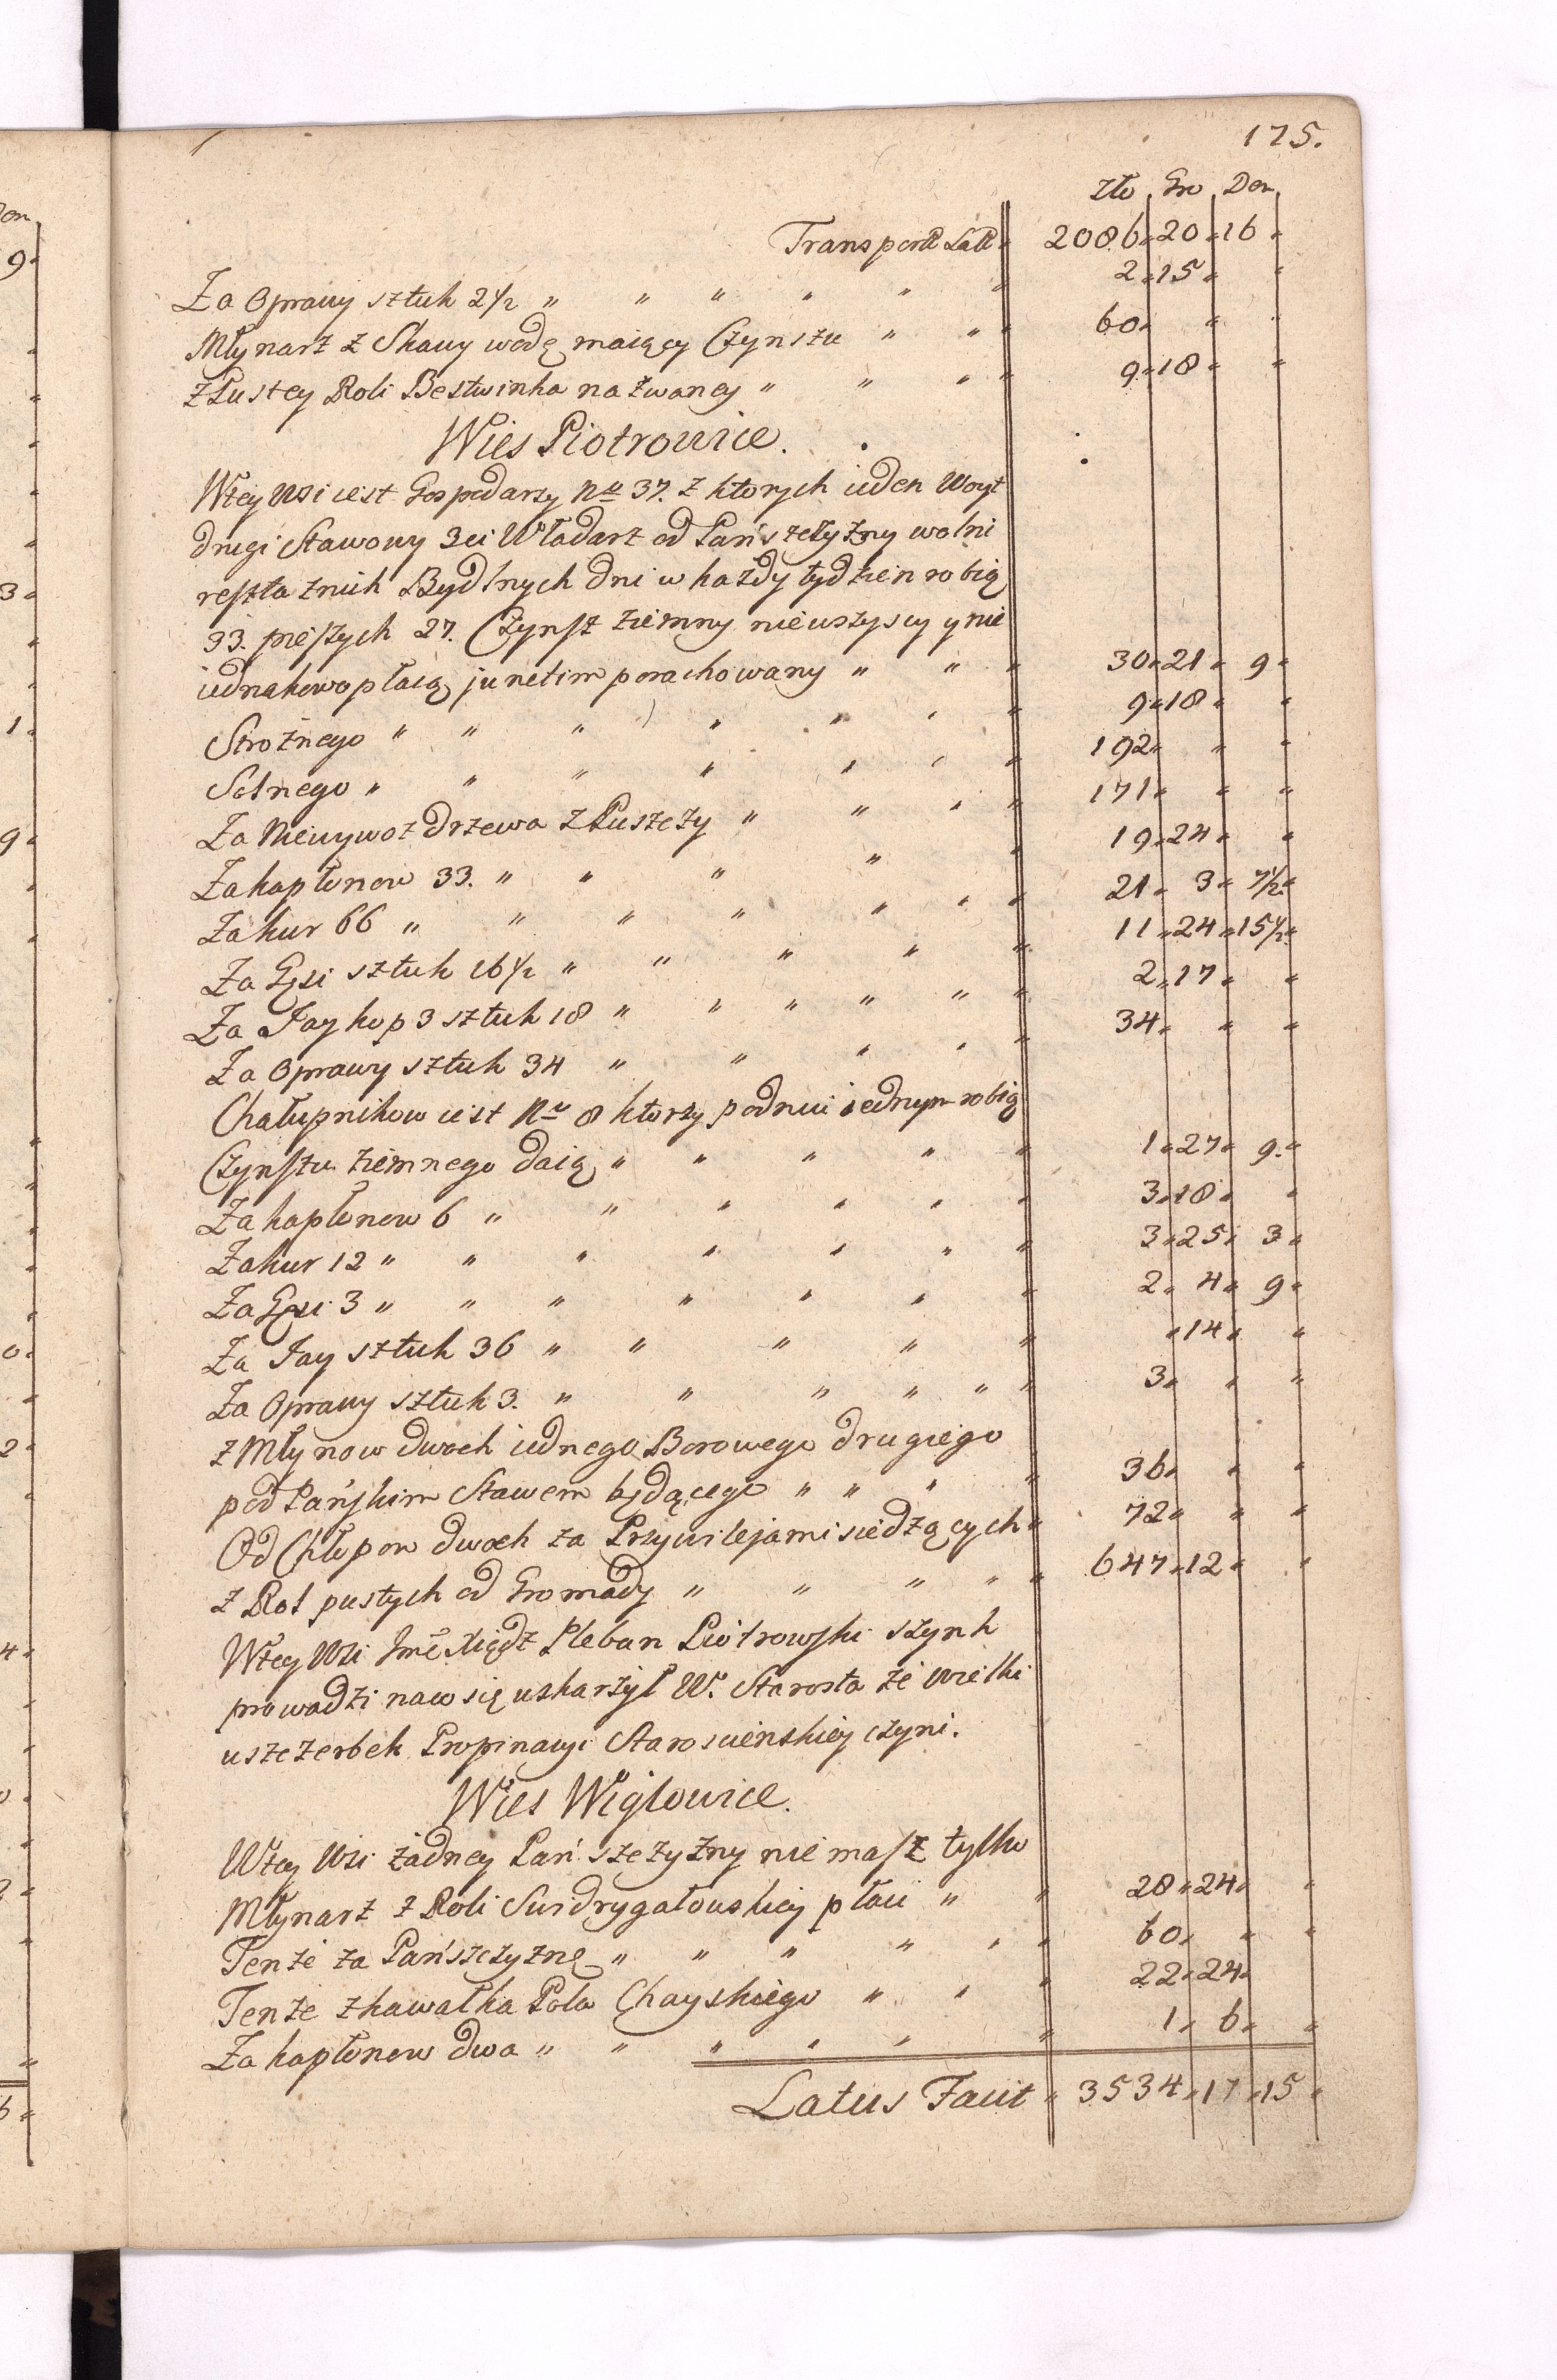 175.
Zło Gro Den
Transport Latt 2086 " 20 " 16 "
Za Oprawy sztuk 2 1/2 " " " " " " 2 " 15 " "
Młynarz z Skawy wodę maiący Czynszu " " " 60 " " "
z Pustey Roli Bestwinka nazwaney " " " " 9 " 18 " "
Wies Piotrowice.
Wtey Wsi iest Gospodarzy No 37. z ktorych ieden Woyt
drugi Stawowy 3ci Włodarz od Pańszczyzny wolni
reszta znich Bydlnych dni w każdy tydzien robią
33. pieszych 27. Czynsz ziemny niewszyscy y nie
iednakowo płacą junctim porachowany " " " 30 " 21 " 9 "
Strożnego " " " " " " " 9 " 18 " "
Solnego " " " " " " " 192 " " "
Za Niewywoz drzewa z Puszczy " " " " 171 " " "
Za kapłonow 33. " " " " " 19 " 24 " "
Za kur 66 " " " " " " " 21 " 3 " 7 1/2 "
Za Gęsi sztuk 16 1/2 " " " " " 11 " 24 " 15 1/2 "
Za Jay kop 3 sztuk 18 " " " " " " 2 " 17 " "
Za Oprawy sztuk 34 " " " " " 34 " " "
Chałupnikow iest No 8 ktorzy podniu iednym robią
Czynszu ziemnego daią " " " " " 1 " 27 " 9. "
Za kapłonow 6 " " " " " " 3 " 18 " "
Za kur 12 " " " " " " " 3 " 25 " 3 "
Za Gęsi 3 " " " " " " " 2 " 4 " 9 "
Za Jay sztuk 36 " " " " " " 14 " "
Za Oprawy sztuk 3. " " " " " " 3 " " "
z Młynow dwoch iednego Borowego drugiego
pod Pańskim Stawem będącego " " " " 36 " " "
Od Chłopow dwoch za Przywilejami siedzących " 72 " " "
z Rol pustych od Gromady " " " " " 647 " 12 " "
Wtey Wsi Jmć Xiądz Pleban Piotrowski szynk
prowadzi naco się uskarżył W. Starosta że wielki
uszczerbek Propinacyi Staroscienskiey czyni.
Wies Wiglowice.
Wtey Wsi żadney Pańszczyzny nie masz tylko
Młynarz z Roli Swidrygałowskiey płaci " " 28 " 24 " "
Tenże za Pańszczyznę " " " " " " 60 " " "
Tenże z kawałka Pola Chayskiego " " " 22 " 24 "
Za kapłonow dwa " " " " " " 1 " 6 " "
Latus Facit " 3534 " 17 " 15 "